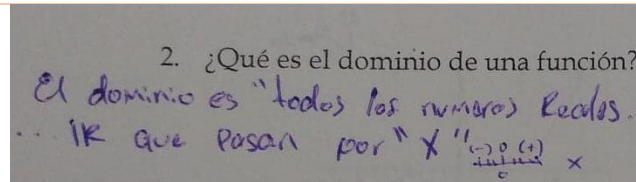 2. ¿Qué es el dominio de una función?
El dominio es "todos los numeros Reales.
... IR que pasan por "X" (-) 0 (+) x
0